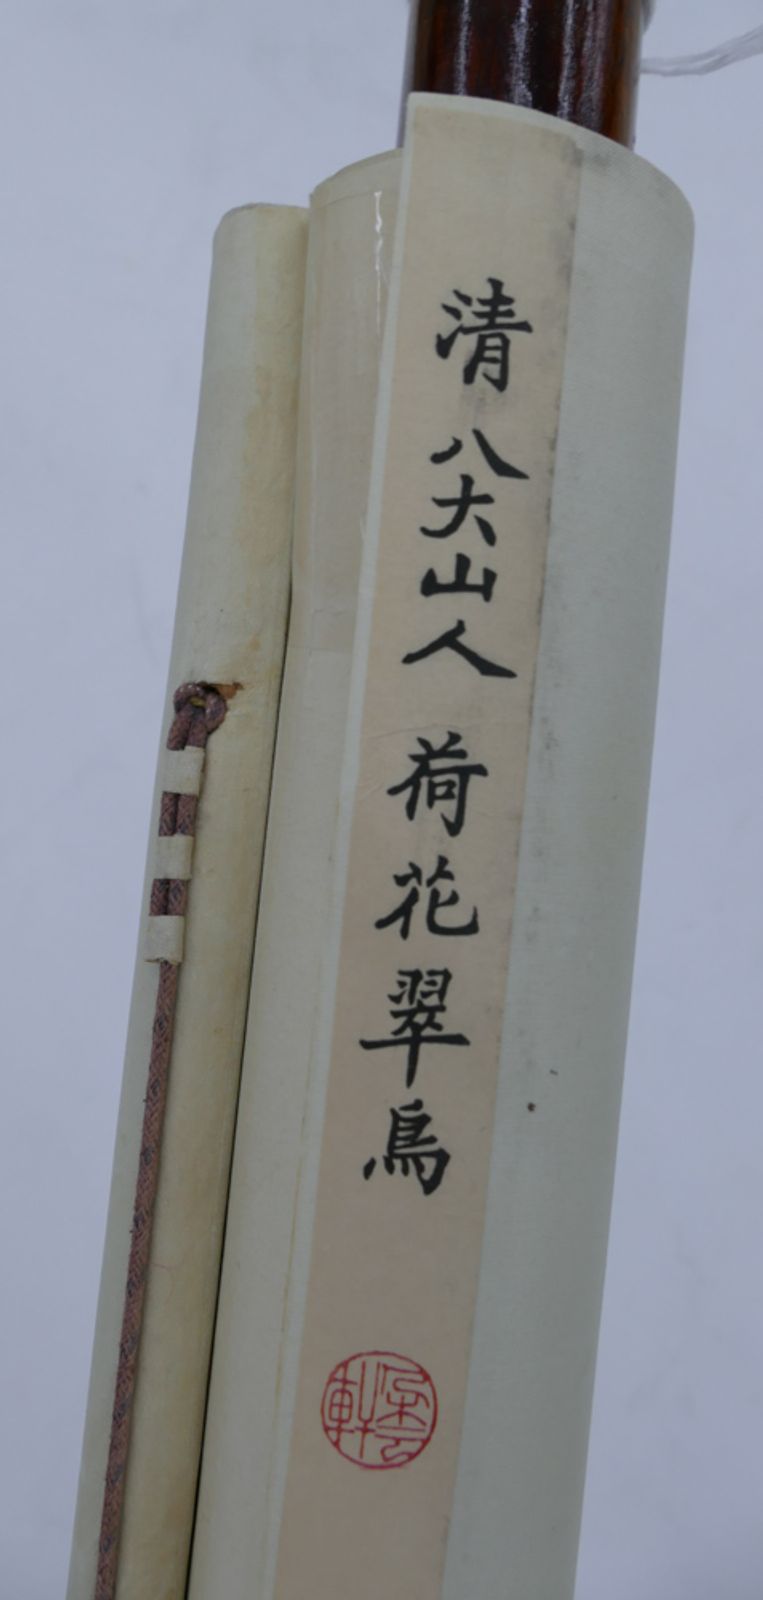 清 八大山人 荷花翠鳥